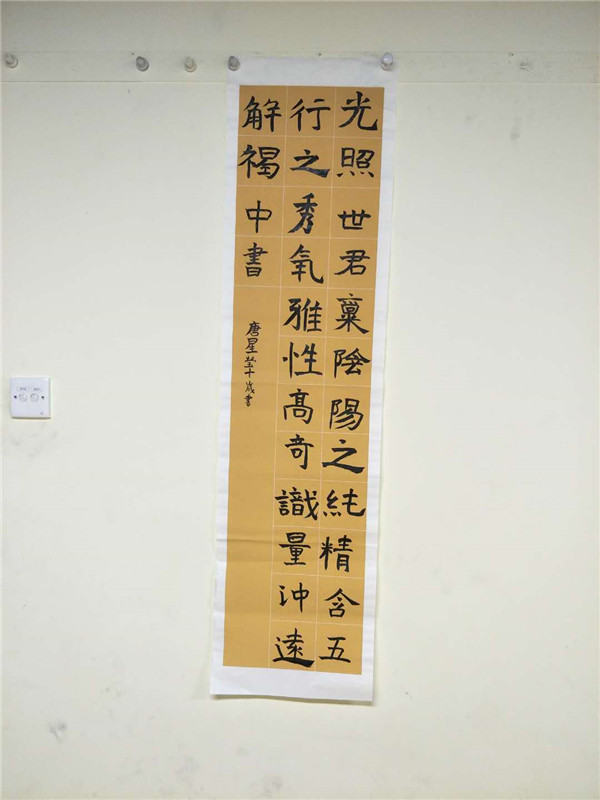 光照世君稟陰陽之純精含五
行之秀氣雅性高奇識量沖遠
解褐中書
唐星瑩十歲書